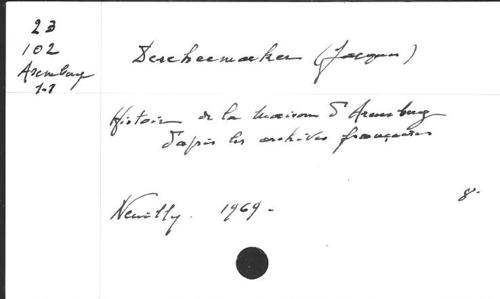 23
102
Arenberg
1-1
Descheemaeker (Jacques)
Histoire de la Maison d'Arenberg
d'après les archives françaises
Neuilly. 1969 -
8-